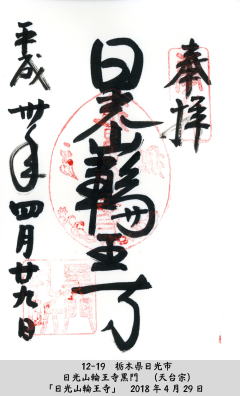 奉拝
日光山輪王寺
平成卅年四月廿九日
12-19 栃木県日光市
日光山輪王寺黒門 (天台宗)
「日光山輪王寺」 2018年4月29日